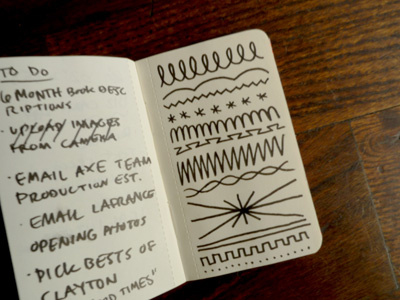 TO DO
6 MONTH BOOK DESC
RIPTIONS
· UPLOAD IMAGES
FROM CAMERA
· EMAIL AXE TEAM
PRODUCTION EST.
· EMAIL LAGRANGE
OPENING PHOTOS
· PICK BESTS OF
CLAYTON
TIMES"